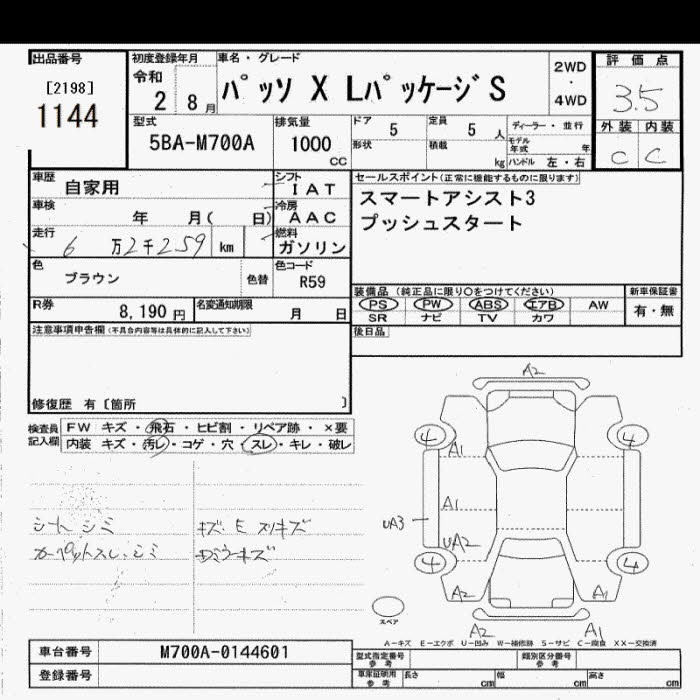 出品番号
[2198]
1144
初度登録年月
令和 2 8月
車名・グレード
パッソ X LパッケージS
2WD
・
4WD
評価点
3.5
外装 内装
C C
型式
5BA-M700A
排気量
1000
CC
ドア 5
形状
定員 5 人
積載 kg
ディーラー・並行
モデル年式 年
ハンドル 左・右
車歴 自家用
車検 年 月( 日)
走行 6万2千259 km
シフト
IAT
冷房
AAC
燃料
ガソリン
セールスポイント(正常に機能するものに限ります)
スマートアシスト3
プッシュスタート
色 ブラウン 色替
色コード
R59
R券 8,190 円
名変通知期限 月 日
装備品 (純正品に限り○をつけてください)
PS PW ABS エアB AW
SR ナビ TV カワ
新車保証書
有・無
後日品
注意事項申告欄(不具合内容等は具体的に記入して下さい)
修復歴 有〔箇所 〕
検査員記入欄
FW キズ・飛石・ヒビ割・リペア跡・×要
内装 キズ・汚レ・コゲ・穴・スレ・キレ・破レ
シート シミ
カーペットスレ、シミ
キズ・E スリキズ
A2
4 4
A1
A1
UA3
UA2
4 4
A2 A1
A2 A1
スペア
A-キズ E-エクボ U-凹み W-補修跡 S-サビ C-腐食 XX-交換済
車台番号 M700A-0144601
登録番号
型式指定番号 参考
類別区分番号 参考
車庫証明用 参考
長さ cm 幅 cm 高さ cm